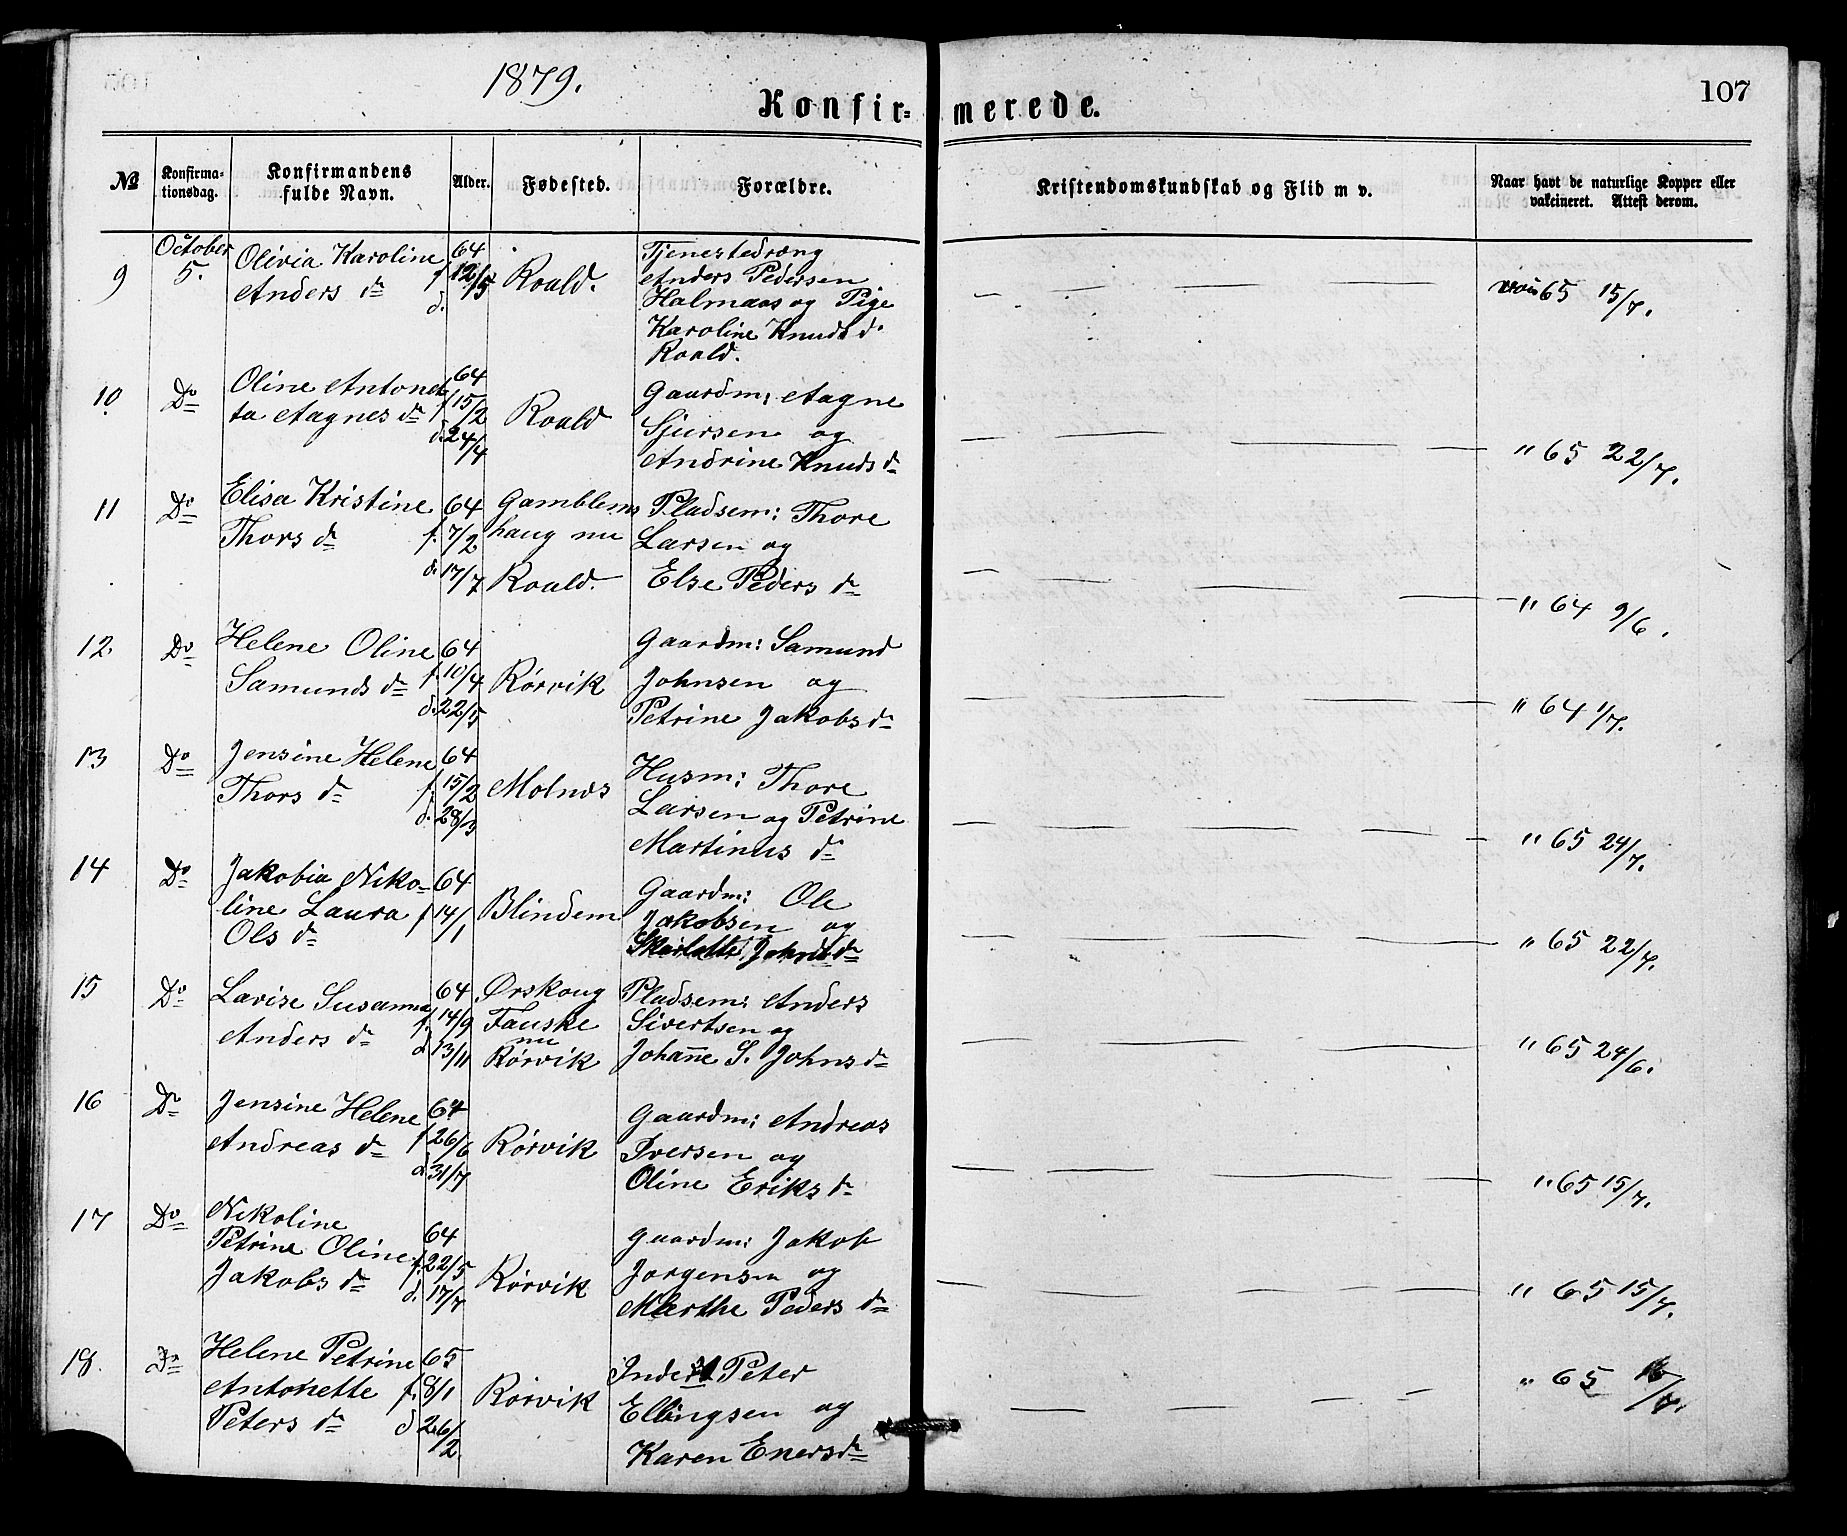 1879.
107
Konfir-
merede.
No
Konfirma-
tionsdag.
Konfirmandens
fulde Navn.
Alder.
Fødested.
Forældre.
Kristendomskundskab og Flid m v.
Naar havt de naturlige Kopper eller
vakcineret. Attest derom.
9
October
5.
Olivia Karoline
Anders dr
64
f. 12/5
d.
Roald.
Tjenestedræng
Anders Pedersen
Halmaas og Pige
Karoline Knuds d.
Roald.
65 15/7.
10
Do
Oline Antonet
ta Aagnes dr
64
f 15/2
d. 24/4
Roald
Gaardm: Aagne
Sjursen og
Andrine Knuds dr
" 65 22/7.
11
Do
Elisa Kristine
Thors dr
64
f. 7/2
d. 17/7
Gamblems
haug nu
Roald.
Pladsem: Thore
Larsen og
Else Peders dr
" 64 9/6.
12.
Do
Helene Oline
Samunds dr
64
f. 10/4
d. 22/5
Rörvik
Gaardm: Samund
Johnsen og
Petrine Jakobs dr
" 64 1/7.
13
Do
Jensine Helene
Thors dr
64
f. 15/2
d. 28/3
Molnes
Husm: Thore
Larsen og Petrine
Martinus dr
" 65 24/7.
14
Do
Jakobia Niko-
line Laura
Ols dr
64
f 14/1
Blindem
Gaardm: Ole
Jakobsen og
Johns dr
" 65 22/7.
15
Do
Lavise Susanna
Anders dr
64
f. 14/9
d 13/11
Ørskoug
Fauske
nu
Rörvik
Pladsem: Anders
Sivertsen og
Johanne S. Johns dr
" 65 24/6.
16
Do
Jensine Helene
Andreas dr
64
f 26/6
d 31/7
Rörvik
Gaardm: Andreas
Iversen og
Oline Eriks dr
" 65 15/7.
17
Do
Nikoline
Petrine Oline
Jakobs dr
64
f. 22/5
d. 17/7
Rörvik
Gaardm: Jakob
Jørgensen og
Marthe Peders dr
" 65 15/7.
18.
Do
Helene Petrine
Antonette
Peters dr
65
f. 8/1
d 26/2.
Rörvik
Inderst Peter
Ellingsen og
Karen Eners dr
" 65